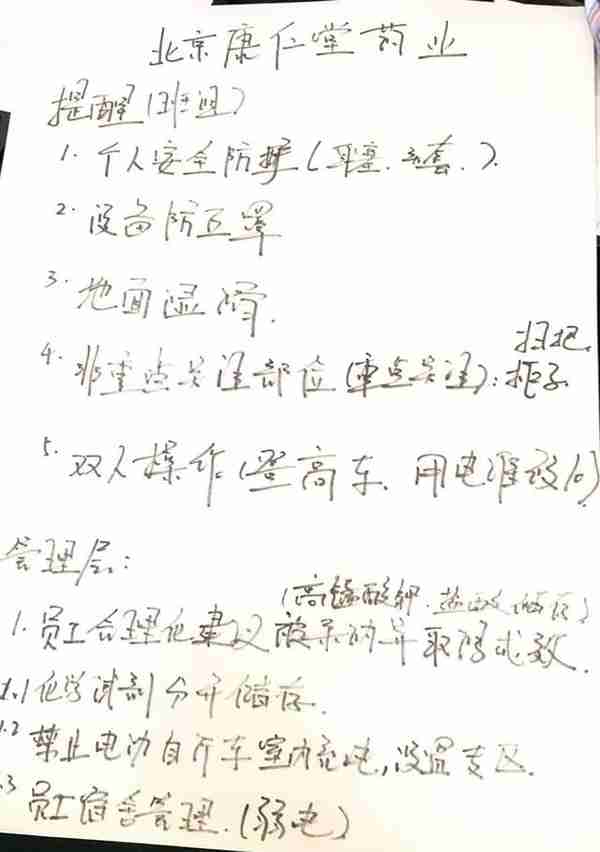 北京康仁堂药业
提醒(班组)
1. 个人安全防护(耳塞、手套、).
2. 设备防护罩
3. 地面湿滑.
扫把、
4. 非重点关注部位(重点关注):柜子
5. 双人操作(登高车、用电维设)
管理层:
(高锰酸钾、盐酸储存)
1. 员工合理化建议被采纳并取得成效.
1.1 化学试剂分开储存.
1.2 禁止电动自行车室内充电,设置专区.
.3 员工宿舍管理.(弱电)